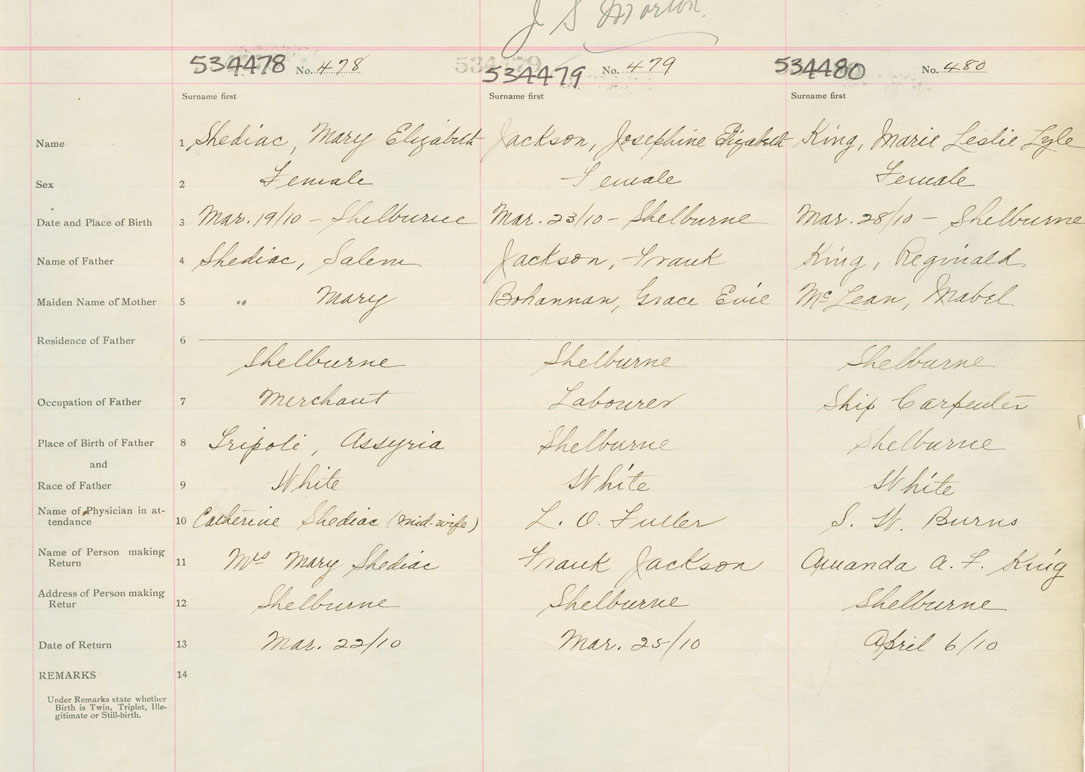 J S Morton
534478 No. 478 534479 534479 No. 479 534480 No. 480
Surname first Surname first Surname first
Name 1 Shediac, Mary Elizabeth Jackson, Josephine Elizabeth King, Marie Leslie Lyle
Sex 2 Female Female Female
Date and Place of Birth 3 Mar. 19/10 - Shelburne Mar. 23/10 - Shelburne Mar. 28/10 - Shelburne
Name of Father 4 Shediac, Salem Jackson, Frank King, Reginald
Maiden Name of Mother 5 " Mary Bohannan, Grace Evie McLean, Mabel
Residence of Father 6
Shelburne Shelburne Shelburne
Occupation of Father 7 Merchant Labourer Ship Carpenter
Place of Birth of Father 8 Tripoli, Assyria Shelburne Shelburne
and
Race of Father 9 White White White
Name of Physician in at-
tendance 10 Catherine Shediac (mid-wife) L. O. Fuller S. W. Burns
Name of Person making
Return 11 Mrs Mary Shediac Frank Jackson Amanda A. F. King
Address of Person making
Retur 12 Shelburne Shelburne Shelburne
Date of Return 13 Mar. 22/10 Mar. 25/10 April 6/10
REMARKS 14
Under Remarks state whether
Birth is Twin, Triplet, Ille-
gitimate or Still-birth.